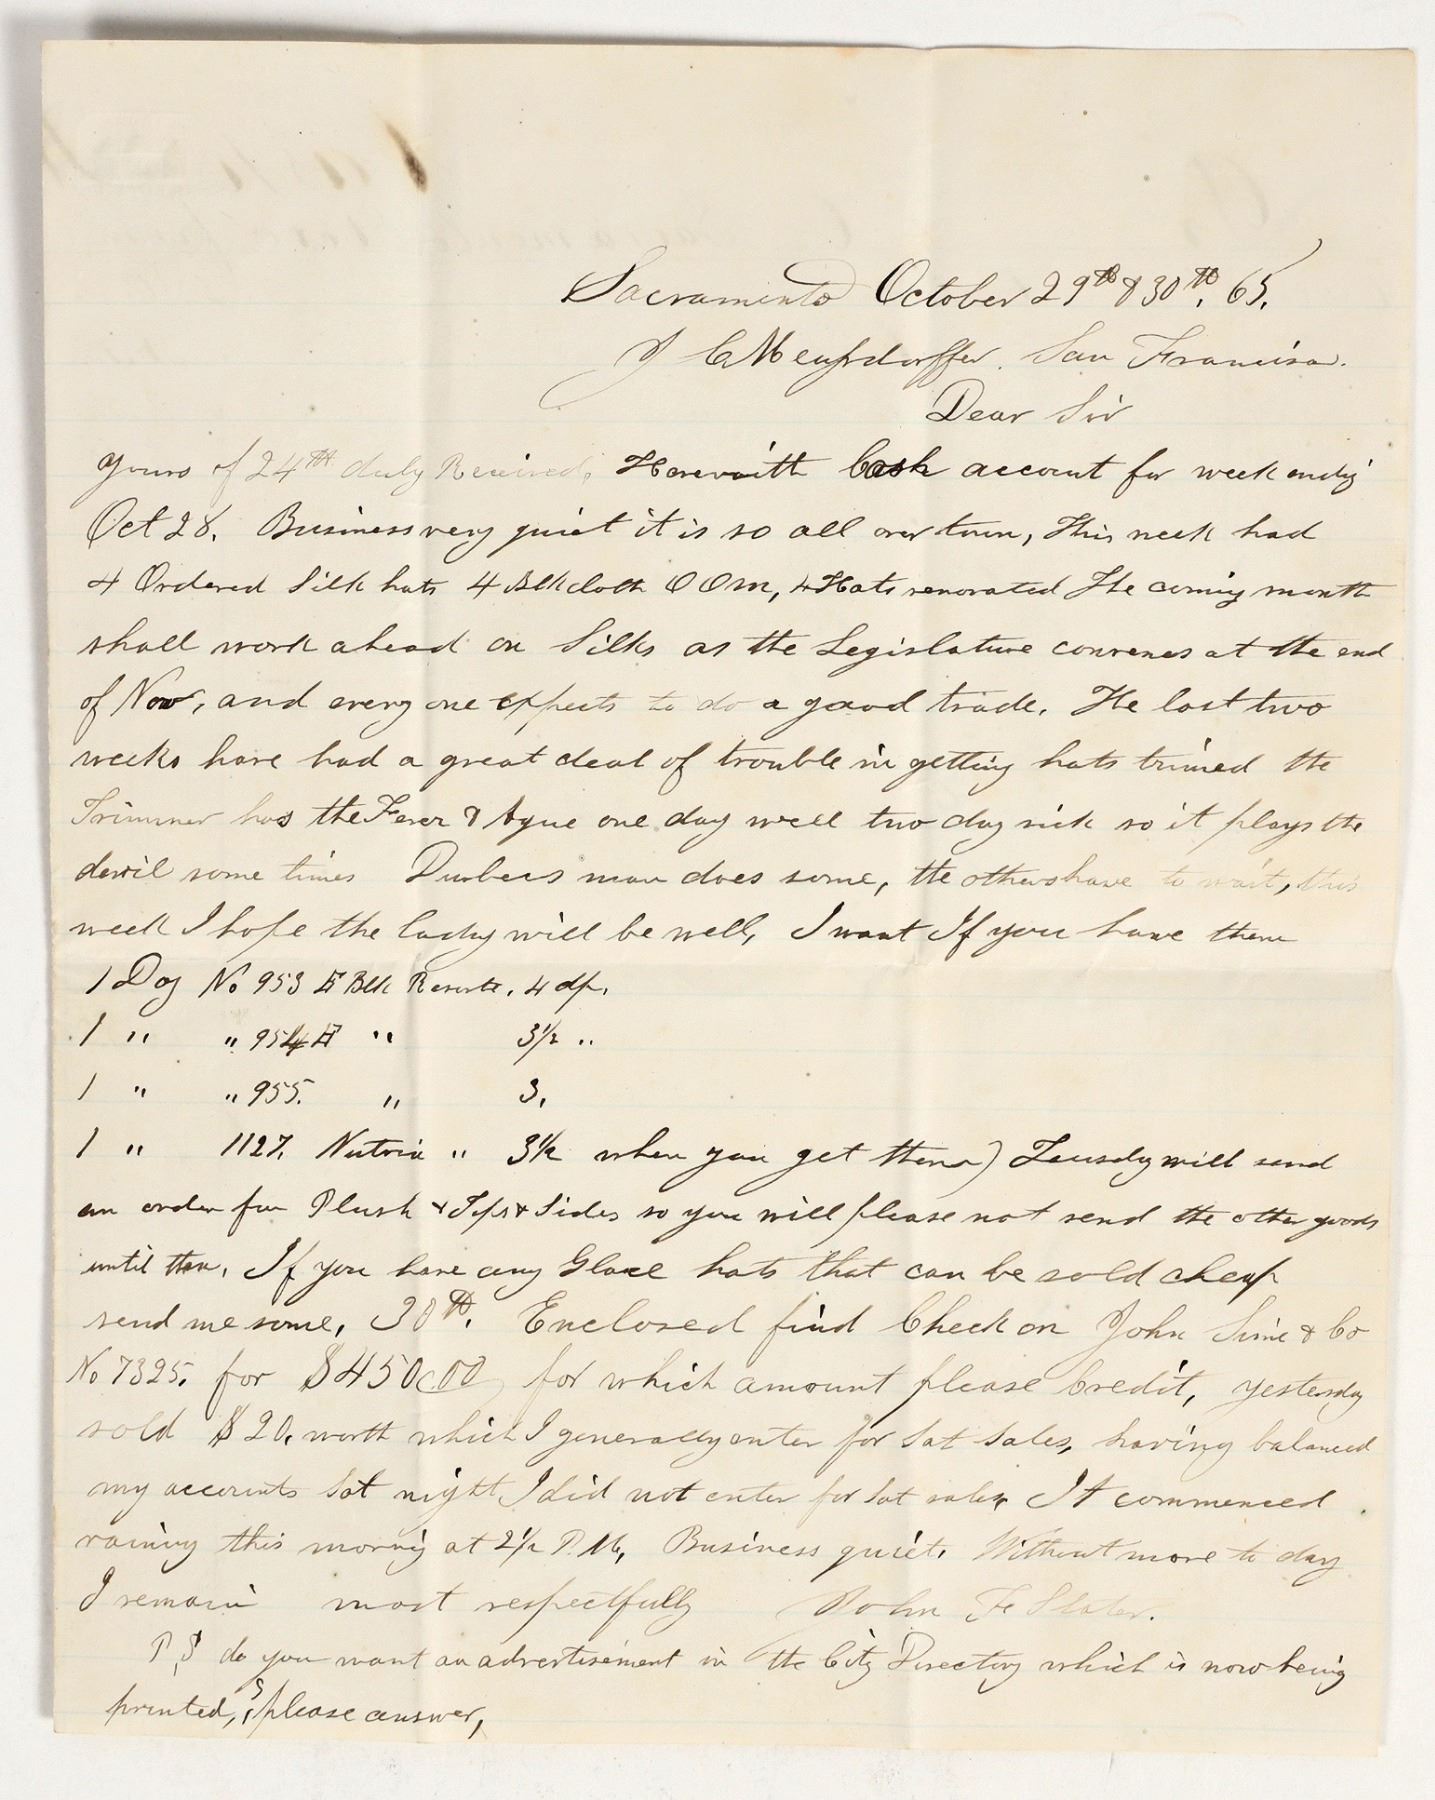 Sacramento October 29th & 30th, 65.
J C Meussdorffer. San Francisco.
Dear Sir
yours of 24th duly Received, Herewith Cash account for week endig
Oct 28. Business very quiet it is so all over town, This week had
4 Ordered Silk hats 4 Blk cloth O O M, 4 Hats renovated The coming month
shall work ahead on Silks as the Legislature convenes at the end
of Nov, and every one expects to do a good trade. The last two
weeks have had a great deal of trouble in getting hats trimed the
Trimmer has the Fever & Ague one day well two day sick so it plays the
devil some times Durbecs man does some, the others have to wait, this
week I hope the lady will be well, I want If you have them
1 Doz No 953 Blk Resorte. 4 dp.
1 " " 954 " 3 1/2 "
1 " " 955. " 3.
1 " 1127. Nutria " 3 1/2 when you get them) Teusdy will send
an order for Plush & Tips & Sides so you will please not send the other goods
until then. If you have any Glace hats that can be sold cheap
send me some, 30th. Enclosed find Check on John Sime & Co
No 7325. for $450.00 for which amount please Credit, yesterdy
sold $20. worth which I generally enter for Sat Sales, having balanced
my accounts Sat night, I did not enter for Sat sales, It commenced
raining this mornig at 2 1/2 P.M, Business quiet. Without more to day
I remain most respectfully John F Slater.
P.S do you want an advertisement in the City Directory which is now being
printed,? please answer,